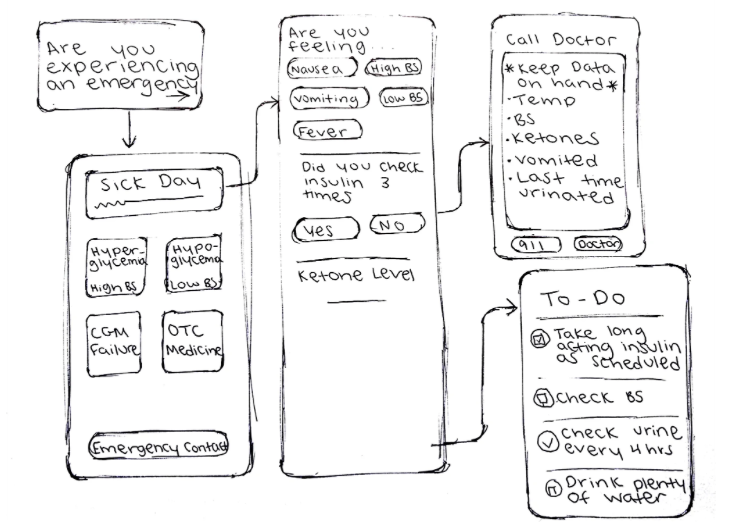 Are you
experiencing
an emergency
Sick Day
Hyper-
glycema
High BS
Hypo-
glycema
Low BS
CGM
Failure
OTC
Medicine
Emergency Contact
Are you
feeling...
Nausea
High BS
Vomiting
Low BS
Fever
Did you check
insulin 3
times
Yes
No
Ketone Level
Call Doctor
*Keep Data
on hand*
·Temp
·BS
·Ketones
·Vomited
·Last time
urinated
911
Doctor
To-Do
Take long
acting insulin
as scheduled
Check BS
Check urine
every 4hrs
Drink plenty
of water